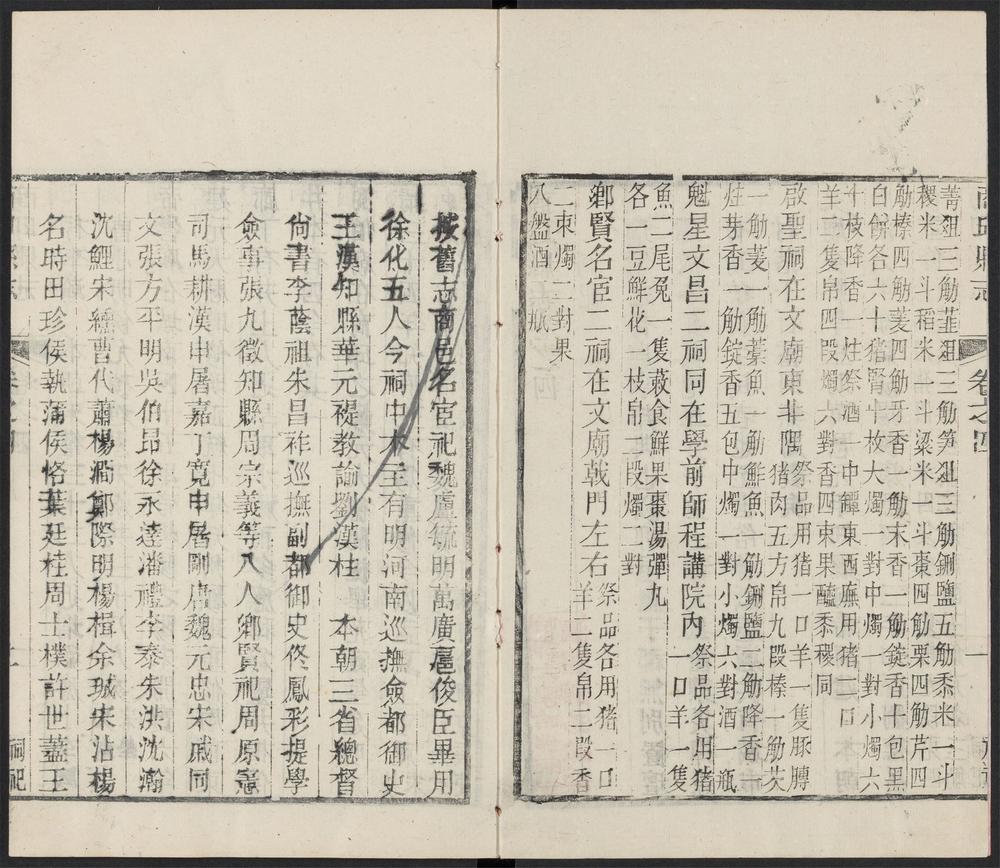 商邱縣志 卷之四 一
菁葅三觔韮葅三觔笋葅三觔鉶鹽五觔黍米一斗
稷米一斗稻米一斗粱米一斗棗四觔栗四觔芹四
觔榛四觔菱四觔牙香一觔末香一觔錠香十包黑
白餅各六十猪腎十枚大燭一對中燭一對小燭六
十枝降香一炷祭酒一中罈東西廡用猪二口
羊二隻帛四段燭六對香四束果醢黍稷同
啟聖祠在文廟東北隅
祭品用猪一口羊一隻豚膊
猪肉五方帛九段榛一觔芡
一觔菱一觔藁魚一觔鮮魚一觔鉶鹽二觔降香一
炷芽香一觔錠香五包中燭一對小燭六對酒一瓶
魁星文昌二祠同在學前師程講院內
祭品各用猪
一口羊一隻
魚二尾兔一隻蔌食鮮果棗湯彈九
各一豆鮮花一枝帛二段燭二對
鄉賢名宦二祠在文廟戟門左右
祭品各用猪一口
羊二隻帛二段香
二束燭二對果
八盤酒一瓶
按舊志商邑名宦祀魏盧毓明萬廣扈俊臣畢用
徐化五人今祠中木主有明河南巡撫僉都御史
王漢知縣華元禔教諭劉漢柱 本朝三省總督
尚書李蔭祖朱昌祚巡撫副都御史佟鳳彩提學
僉事張九徵知縣周宗義等八人鄉賢祀周原憲
司馬耕漢申屠嘉丁寬申屠剛唐魏元忠宋戚同
文張方平明吳伯昂徐永達潘禮李泰朱洪沈瀚
沈鯉宋纁曹代蕭楊澗鄭際明楊楫余珹宋沾楊
名時田珍侯執蒲侯恪葉廷桂周士樸許世藎王
祠祀